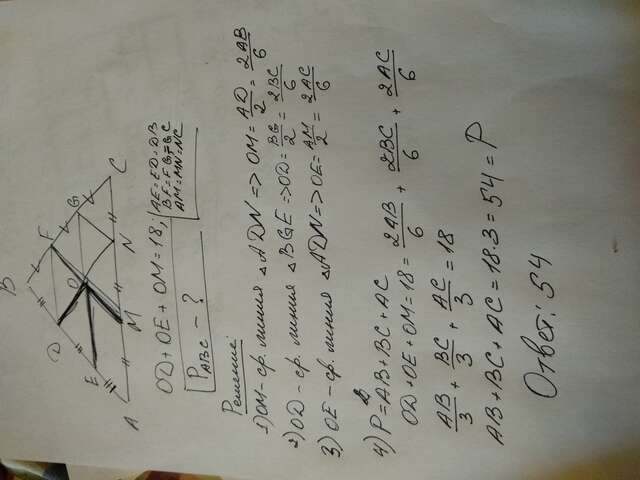 B
D F
E O G
A M N C
OD+OE+OM=18,
AE=ED=DB
BF=FG=GC
AM=MN=NC
P ABC - ?
Решение
1) OM - ср. линия △ADN => OM = AD/2 = 2AB/6
2) OD - ср. линия △BGE => OD = BG/2 = 2BC/6
3) OE - ср. линия △ADN => OE = AM/2 = 2AC/6
4) P△ = AB+BC+AC
OD+OE+OM=18= 2AB/6 + 2BC/6 + 2AC/6
AB/3 + BC/3 + AC/3 = 18
AB+BC+AC=18·3=54=P
Ответ: 54